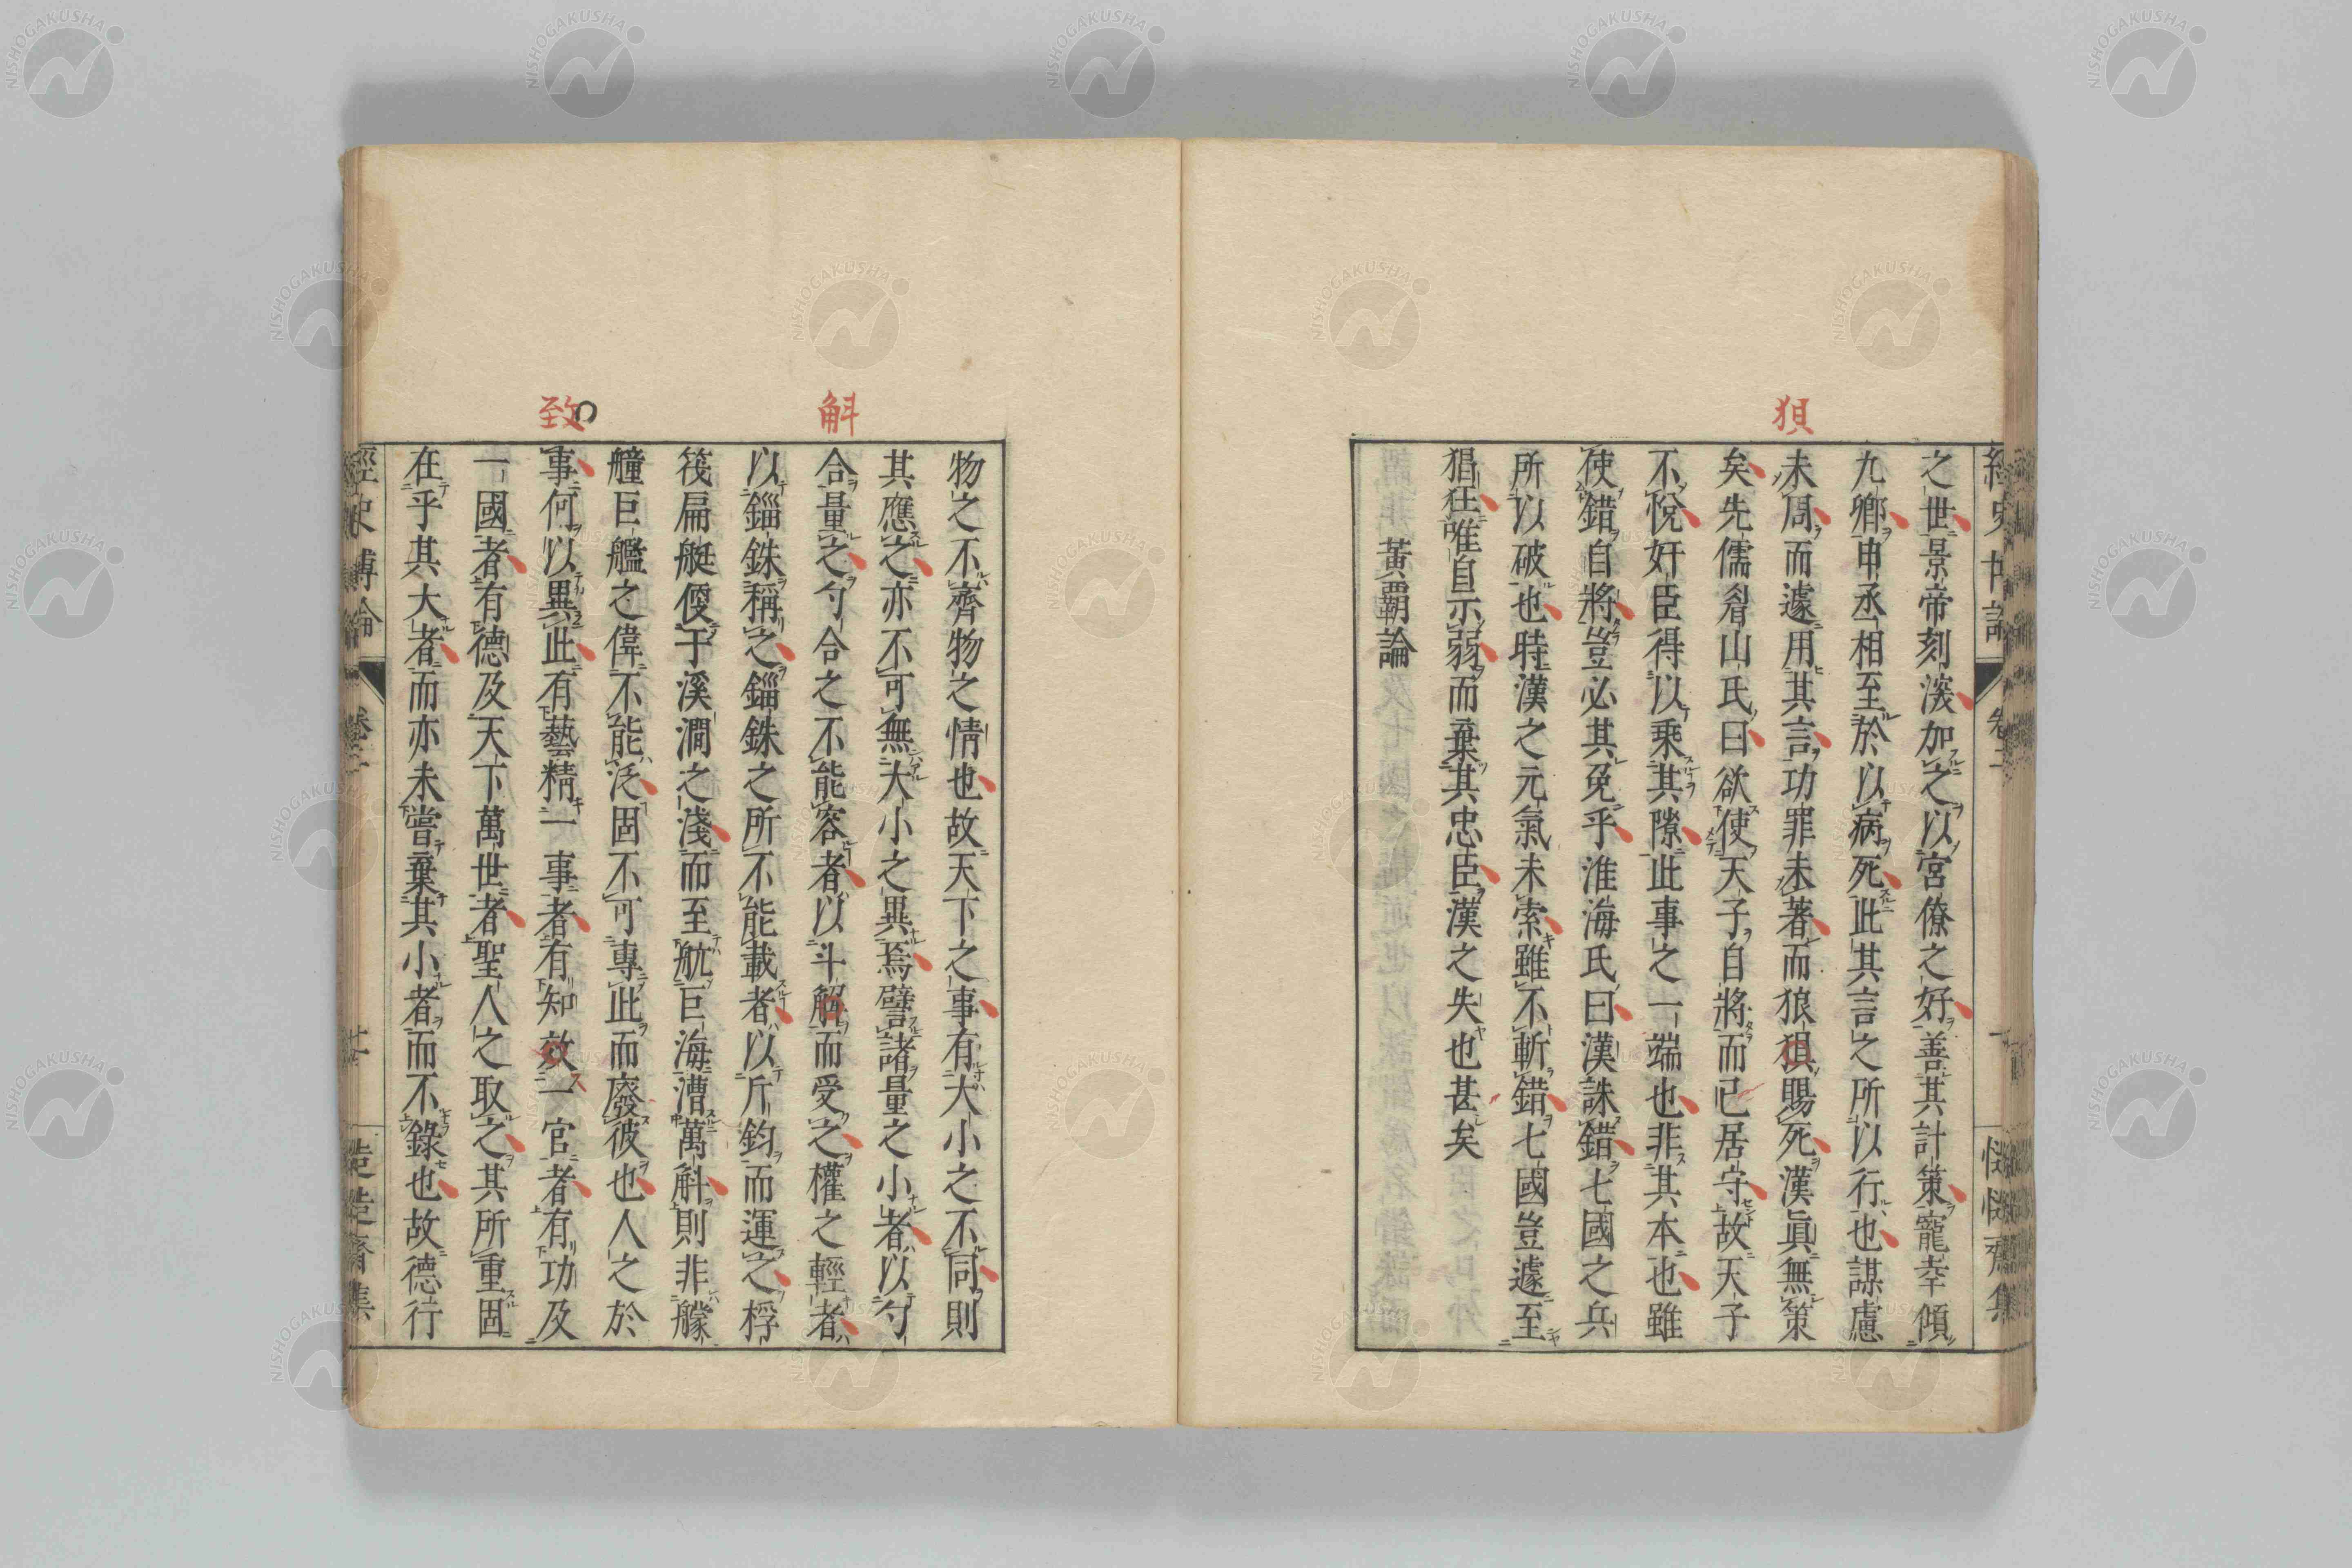 狽
之世景帝刻深加之以宮僚之好善其計策寵幸傾
九卿申丞相至於以病死此其言之所以行也謀慮
未周而遽用其言功罪未著而狼狽賜死漢眞無策
矣先儒眉山氏曰欲使天子自將而已居守故天子
不悅奸臣得以乘其隙此事之一端也非其本也雖
使錯自將豈必其免乎淮海氏曰漢誅錯七國之兵
所以破也時漢之元氣未索雖不斬錯七國豈遽至
猖狂唯自示弱而棄其忠臣漢之失也甚矣
黃覇論
斛
致
物之不齊物之情也故天下之事有大小之不同則
其應之亦不可無大小之異焉譬諸量之小者以勺
合量之勺合之不能容者以斗解而受之權之輕者
以錙銖稱之錙銖之所不能載者以斤鈞而運之桴
筏扁艇便于溪澗之淺而至航巨海漕萬斛則非艨
艟巨艦之偉不能泛固不可專此而廢彼也人之於
事何以異此有藝精一事者有知效一官者有功及
一國者有德及天下萬世者聖人之取之其所重固
在乎其大者而亦未嘗棄其小者而不錄也故德行
經史博論 卷二